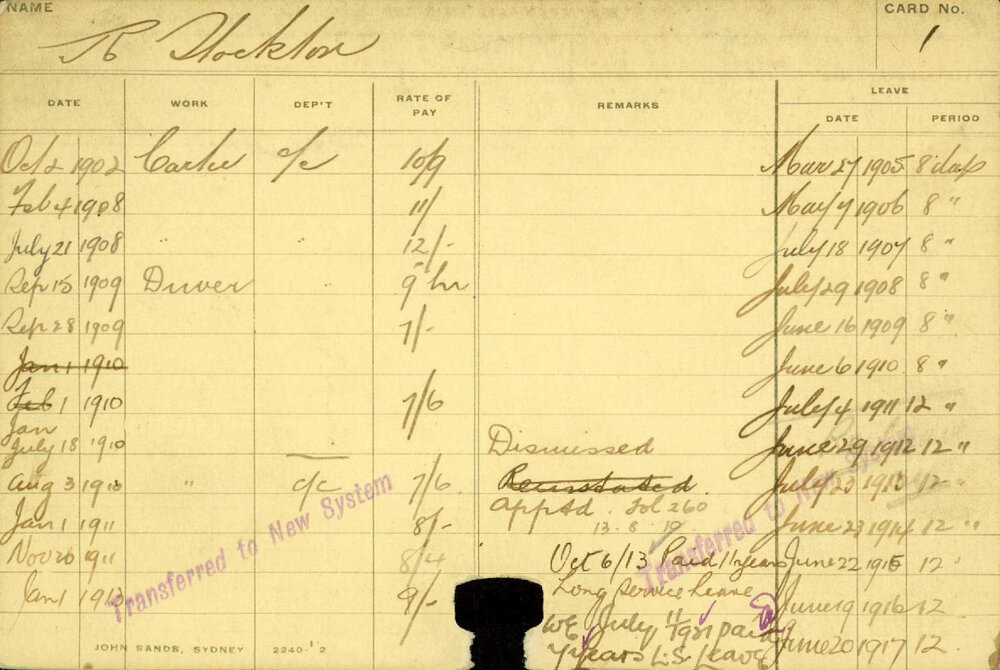 NAME CARD No.
R Stockton 1
LEAVE
DATE WORK DEP'T RATE OF PAY REMARKS DATE PERIOD
Oct 2 1902 Carter c/c 10/9 Mar 27 1905 8 days
Feb 4 1908 11/ May 7 1906 8 "
July 21 1908 " " 12/- July 18 1907 8 "
Sep 15 1909 Driver " 9 hr July 29 1908 8 "
Sep 28 1909 7/- June 16 1909 8 "
Jan 1 1910 June 6 1910 8 "
Feb 1 1910 7/6 July 4 1911 12 "
Jan
July 18 1910 Dismissed June 29 1912 12 "
Aug 3 1910 " c/c 7/6 Reinstated. July 23 1913 12 "
Jan 1 1911 8/- apptd. fol 260 June 23 1914 12 "
13.8.10
Nov 20 1911 8/4 Oct 6/13 Paid 11 years June 22 1915 12 "
Jan 1 1913 9/- Long Service Leave June 19 1916 12
WE July 1921 paid June 20 1917 12
7 years L.S. Leave
Transferred to New System
Transferred to New System
JOHN SANDS, SYDNEY 2240-12